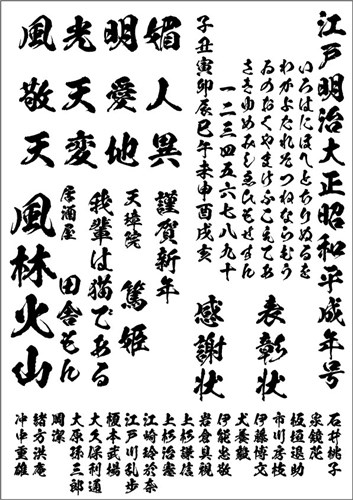 江戸明治大正昭和平成年号
いろはにほへとちりぬるを
わかよたれそつねならむう
ゐのおくやまけふこえてあ
さきゆめみしゑひもせすん
一二三四五六七八九十
子丑寅卯辰巳午未申酉戌亥
表彰状
感謝状
媚人異
明愛地
光天変
風敬天
謹賀新年
天璋院 篤姫
我輩は猫である
居酒屋 田舎もん
風林火山
石井桃子
泉鏡花
板垣退助
市川房枝
伊藤博文
犬養毅
伊能忠敬
岩倉具視
上杉謙信
上杉治憲
江崎玲於奈
江戸川乱歩
榎本武揚
大久保利通
大原孫三郎
岡潔
緒方洪庵
沖中重雄